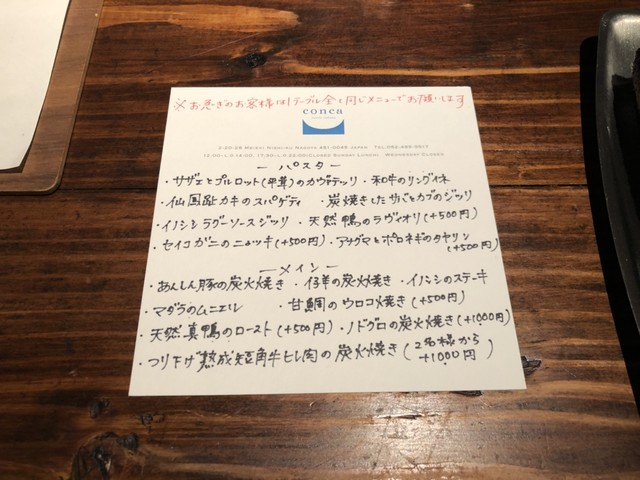 ※お急ぎのお客様は1テーブル全て同じメニューでお願いします
conca
ーパスター
・サザエとプルロット(平茸)のカヴァテッリ ・和牛のリングイネ
・仙鳳趾カキのスパゲティ ・炭焼きしたサバとカブのジッリ
・イノシシラグーソースジッリ ・天然鴨のラヴィオリ(+500円)
・セイコガニのニョッキ(+500円) ・アナグマとポロネギのタヤリン
(+500円)
ーメインー
・あんしん豚の炭火焼き ・仔羊の炭火焼き ・イノシシのステーキ
・マダラのムニエル ・甘鯛のウロコ焼き(+500円)
・天然真鴨のロースト(+500円) ・ノドグロの炭火焼き(+1000円)
・つり下げ熟成短角牛ヒレ肉の炭火焼き(2名様から
+1000円)